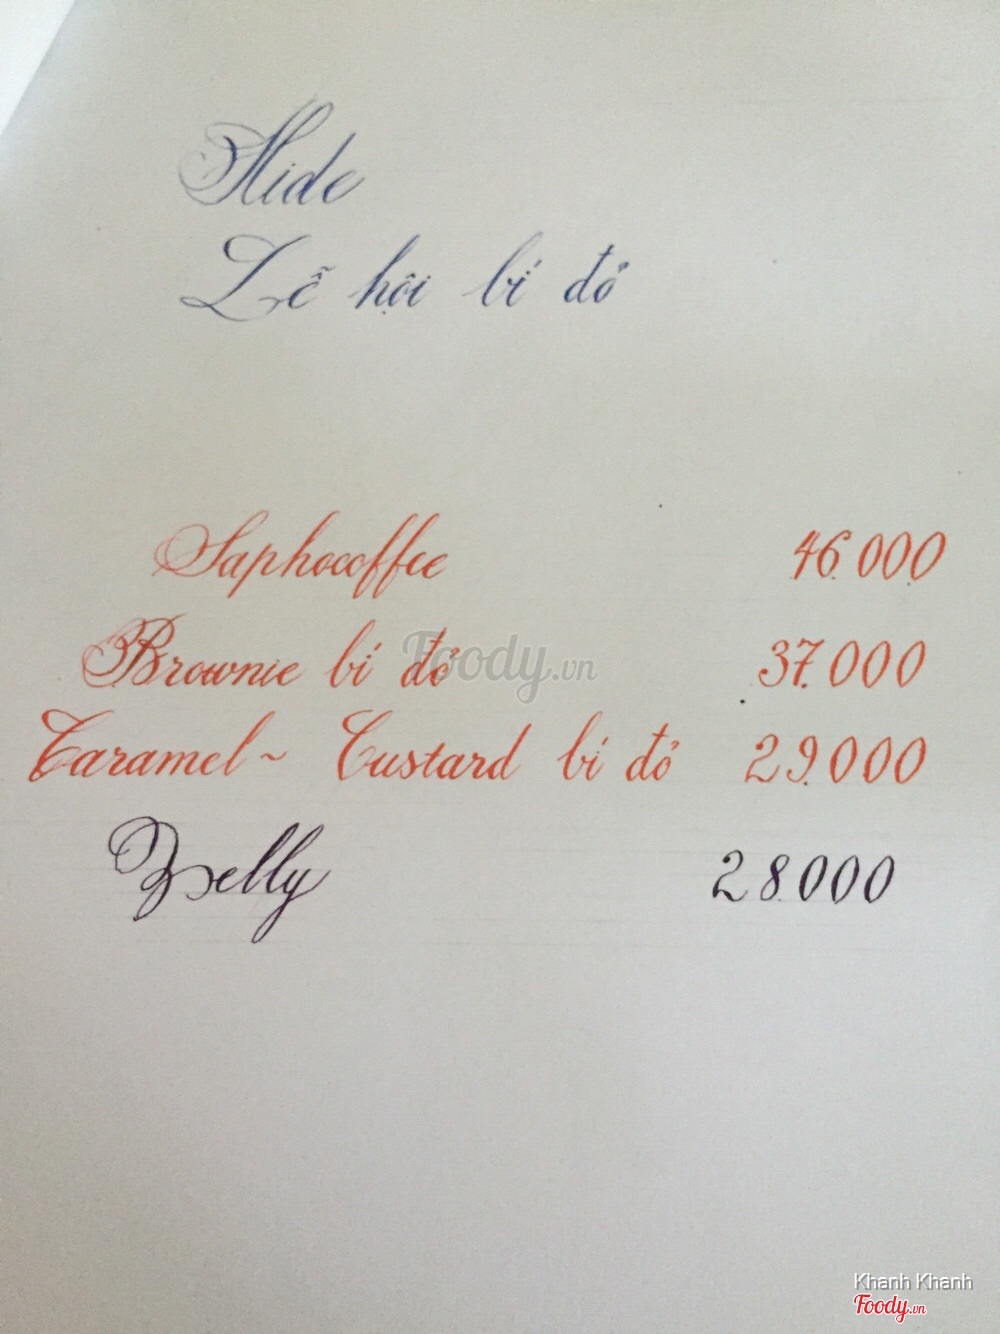 Hide
Lễ hội bí đỏ
Saphocoffee 46.000
Brownie bí đỏ 37.000
Foody.vn
Caramel ~ Custard bí đỏ 29.000
Jelly 28.000
Khanh Khanh
Foody.vn